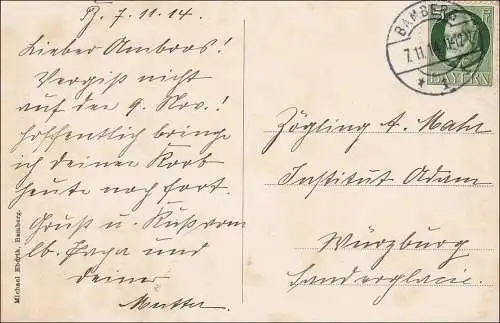 Bg. 7.11.14.
Lieber Ambros!
Vergiß nicht
auf den 9. Nov.!
Hoffentlich bringe
ich deinen Korb
heute noch fort.
Gruß u. Kuß vom
lb. Papa und
deiner
Mutter
Michael Eberth, Bamberg.
BAMBERG
7.11.
1
BAYERN
Zögling A. Mahr
Institut Adam
Würzburg
Sanderglacis.